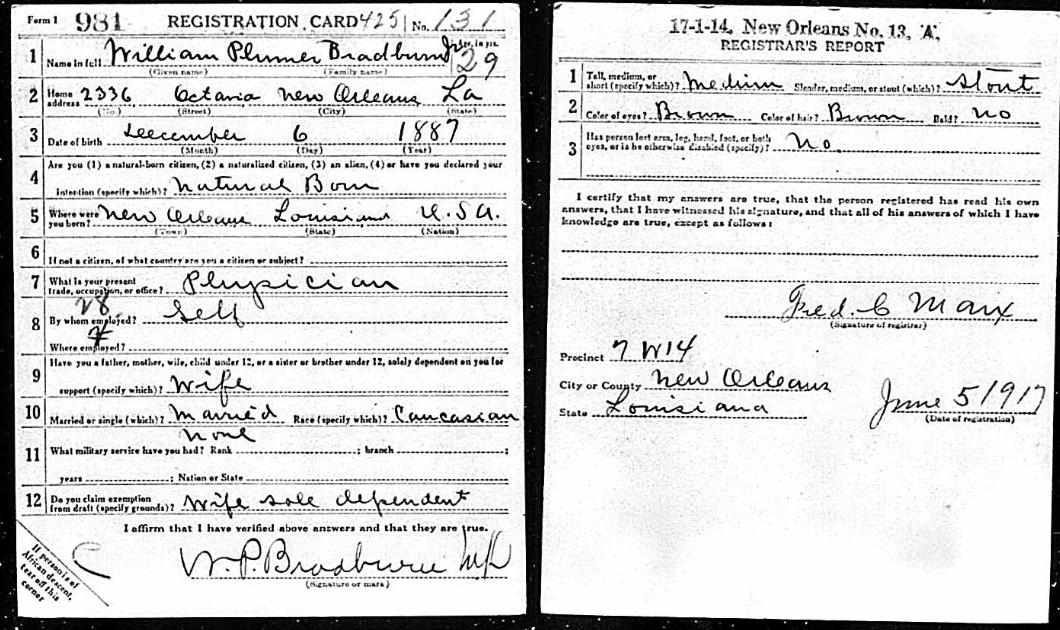 Form 1 981 REGISTRATION CARD 4251 No. 131
1 Name in full William Plumer Bradburn Jr. Age, in yrs. 29
(Given name) (Family name)
2 Home address 2336 Octavia New Orleans La
(No.) (Street) (City) (State)
3 Date of birth December 6 1887
(Month) (Day) (Year)
4 Are you (1) a natural-born citizen, (2) a naturalized citizen, (3) an alien, (4) or have you declared your
intention (specify which)? Natural Born
5 Where were you born? New Orleans Louisiana U.S.A.
(Town) (State) (Nation)
6 If not a citizen, of what country are you a citizen or subject?
7 What is your present trade, occupation, or office? Physician
28
8 By whom employed? Self
Where employed?
9 Have you a father, mother, wife, child under 12, or a sister or brother under 12, solely dependent on you for
support (specify which)? Wife
10 Married or single (which)? Married Race (specify which)? Caucasian
none
11 What military service have you had? Rank ; branch ;
years ; Nation or State
12 Do you claim exemption from draft (specify grounds)? Wife sole dependent
I affirm that I have verified above answers and that they are true.
W. P. Bradburn
(Signature or mark)
If person is of
African descent,
tear off this
corner
17-1-14. New Orleans No. 13, "A",
REGISTRAR'S REPORT
1 Tall, medium, or short (specify which)? Medium Slender, medium, or stout (which)? Stout
2 Color of eyes? Brown Color of hair? Brown Bald? No
3 Has person lost arm, leg, hand, foot, or both
eyes, or is he otherwise disabled (specify)? No
I certify that my answers are true, that the person registered has read his own
answers, that I have witnessed his signature, and that all of his answers of which I have
knowledge are true, except as follows:
Fred. C Marx
(Signature of registrar)
Precinct 7 W14
City or County New Orleans
State Louisiana
June 5 1917
(Date of registration)